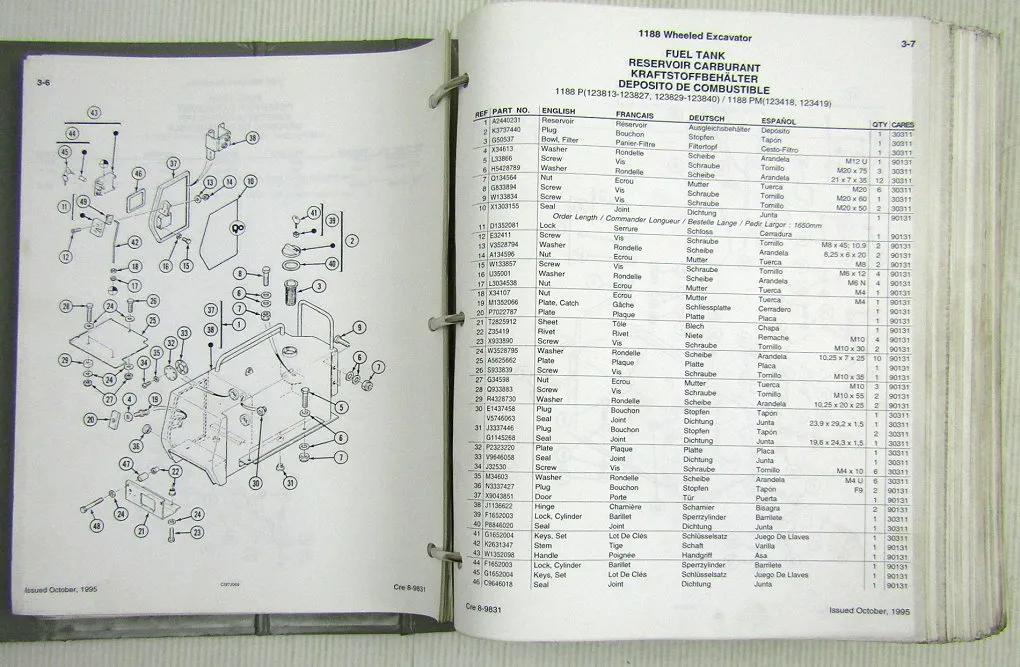 3-6
43
44
45
46
37
38
11
49
13
14
10
41
39
2
12
42
16
15
40
18
17
8
3
28
24
26
25
6
7
37
1
38
9
33
32
35
34
29
24
27
4
19
20
36
5
6
7
47
22
30
31
48
24
21
24
23
Issued October, 1995
Cre 8-9831
1188 Wheeled Excavator
3-7
FUEL TANK
RESERVOIR CARBURANT
KRAFTSTOFFBEHÄLTER
DEPOSITO DE COMBUSTIBLE
1188 P(123813-123827, 123829-123840) / 1188 PM(123418, 123419)
REF PART NO. ENGLISH FRANCAIS DEUTSCH ESPAÑOL QTY CARES
1 A2440231 Reservoir Réservoir Ausgleichsbehälter Depósito 1 30311
2 K3737440 Plug Bouchon Stopfen Tapón 1 30311
3 G50537 Bowl, Filter Panier-Filtre Filtertopf Cesto-Filtro 1 30311
4 X34613 Washer Rondelle Scheibe Arandela M12 U 1 90131
5 L33866 Screw Vis Schraube Tornillo M20 x 75 3 90131
6 H5428789 Washer Rondelle Scheibe Arandela 21 x 7 x 35 12 90131
7 Q134564 Nut Ecrou Mutter Tuerca M20 6 90131
8 G833894 Screw Vis Schraube Tornillo M20 x 60 1 90131
9 W133834 Screw Vis Schraube Tornillo M20 x 50 2 90131
10 X1303155 Seal Joint Dichtung Junta 1 90131
Order Length / Commander Longueur / Bestelle Lange / Pedir Largor : 1650mm
11 D1352081 Lock Serrure Schloss Cerradura 1 90131
12 E32411 Screw Vis Schraube Tornillo M8 x 45; 10,9 2 90131
13 V3528794 Washer Rondelle Scheibe Arandela 8,25 x 6 x 20 2 90131
14 A134596 Nut Ecrou Mutter Tuerca M8 2 90131
15 W133857 Screw Vis Schraube Tornillo M6 x 12 4 90131
16 U35001 Washer Rondelle Scheibe Arandela M6 N 4 90131
17 L3034538 Nut Ecrou Mutter Tuerca M4 1 90131
18 X34107 Nut Ecrou Mutter Tuerca M4 1 90131
19 M1352066 Plate, Catch Gâche Schliessplatte Cerradero 1 90131
20 P7022787 Plate Plaque Platte Placa 1 90131
21 T2825912 Sheet Tôle Blech Chapa 1 90131
22 Z35419 Rivet Rivet Niete Remache M10 4 90131
23 X933890 Screw Vis Schraube Tornillo M10 x 30 2 90131
24 W3528795 Washer Rondelle Scheibe Arandela 10,25 x 7 x 25 10 90131
25 A5625662 Plate Plaque Platte Placa 1 90131
26 S933839 Screw Vis Schraube Tornillo M10 x 35 1 90131
27 G34598 Nut Ecrou Mutter Tuerca M10 3 90131
28 Q933883 Screw Vis Schraube Tornillo M10 x 55 2 90131
29 R4328730 Washer Rondelle Scheibe Arandela 10,25 x 20 x 25 2 90131
30 E1437458 Plug Bouchon Stopfen Tapón 1 30311
V5746063 Seal Joint Dichtung Junta 23,9 x 29,2 x 1.5 1 30311
31 J3337446 Plug Bouchon Stopfen Tapón 2 30311
G1145268 Seal Joint Dichtung Junta 19,6 x 24,3 x 1,5 1 30311
32 P2323220 Plate Plaque Platte Placa 1 30311
33 V9646058 Seal Joint Dichtung Junta 1 30311
34 J32530 Screw Vis Schraube Tornillo M4 x 10 6 30311
35 M34603 Washer Rondelle Scheibe Arandela M4 U 6 30311
36 N3337427 Plug Bouchon Stopfen Tapón F9 2 90131
37 X9043851 Door Porte Tür Puerta 1 90131
38 J1136622 Hinge Charnière Schamier Bisagra 2 90131
39 F1652003 Lock, Cylinder Barillet Sperrzylinder Barrilete 1 30311
40 P8846020 Seal Joint Dichtung Junta 1 30311
41 G1652004 Keys, Set Lot De Clés Schlüsselsatz Juego De Llaves 1 30311
42 K2631347 Stem Tige Schaft Varilla 1 90131
43 W1352098 Handle Poignée Handgriff Asa 1 90131
44 F1652003 Lock, Cylinder Barillet Sperrzylinder Barrilete 1 90131
45 G1652004 Keys, Set Lot De Clés Schlüsselsatz Juego De Llaves 1 90131
46 C9646018 Seal Joint Dichtung Junta 1 90131
Cre 8-9831
Issued October, 1995